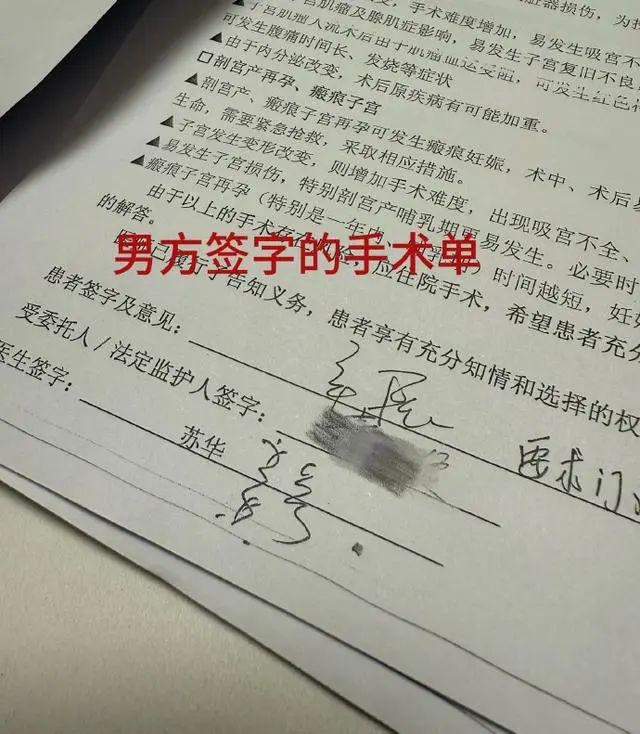 手术难度增加，易发生吸宫不
子宫肌瘤及腺肌症影响，易发生子宫复旧不良
▲子宫肌瘤人流术后由于肌瘤血运受阻，可发生红色
可发生腹痛时间长、发烧等症状
▲由于内分泌改变，术后原疾病有可能加重。
□剖宫产再孕、瘢痕子宫
▲剖宫产、瘢痕子宫再孕可发生瘢痕妊娠，术中、术后
生命，需要紧急抢救，采取相应措施。
▲子宫发生变形改变，则增加手术难度，出现吸宫不全、
▲易发生子宫损伤，特别剖宫产哺乳期更易发生。必要时
▲瘢痕子宫再孕（特别是一年内、）时间越短，妊
由于以上的手术存在风险，应住院手术，希望患者充分
的解答。
医师已履行了告知义务，患者享有充分知情和选择的权
男方签字的手术单
患者签字及意见：
受委托人/法定监护人签字：
要求门
医生签字：
苏华